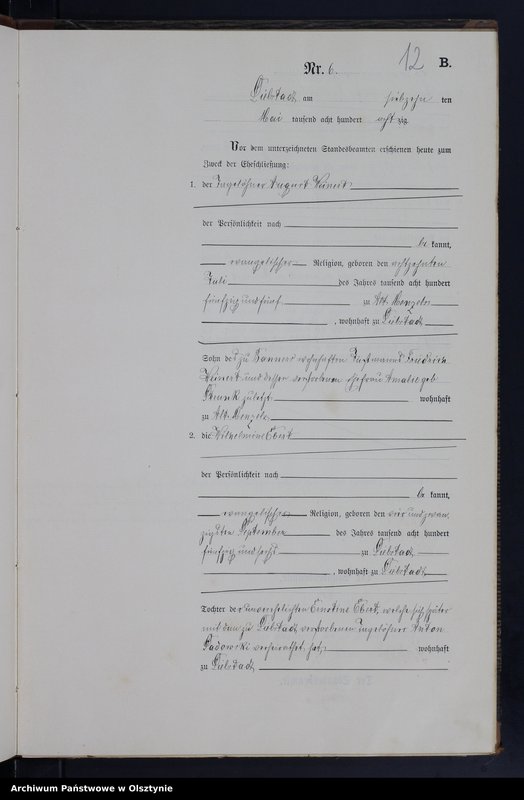 12
Nr. 6. B.
Liebstadt am siebzehn ten
Mai tausend acht hundert acht zig.
Vor dem unterzeichneten Standesbeamten erschienen heute zum
Zweck der Eheschließung:
1. der Tagelöhner August
der Persönlichkeit nach
be kannt,
evangelischer Religion, geboren den achtzehnten
Juli des Jahres tausend acht hundert
fünfzig und fünf zu Alt
, wohnhaft zu Liebstadt
Sohn des zu wohnhaften Friedrich
und dessen verstorbenen Ehefrau Amalie geb.
zuletzt wohnhaft
zu Alt
2. die Wilhelmine Ebert
der Persönlichkeit nach
be kannt,
evangelischer Religion, geboren den vier und zwan
zigsten September des Jahres tausend acht hundert
fünfzig und sechs zu Liebstadt
, wohnhaft zu Liebstadt
Tochter der unverehelichten Ebert, welche sich später
mit dem zu Liebstadt verstorbenen Tagelöhner Anton
verheirathet hat, wohnhaft
zu Liebstadt
Archiwum Państwowe w Olsztynie